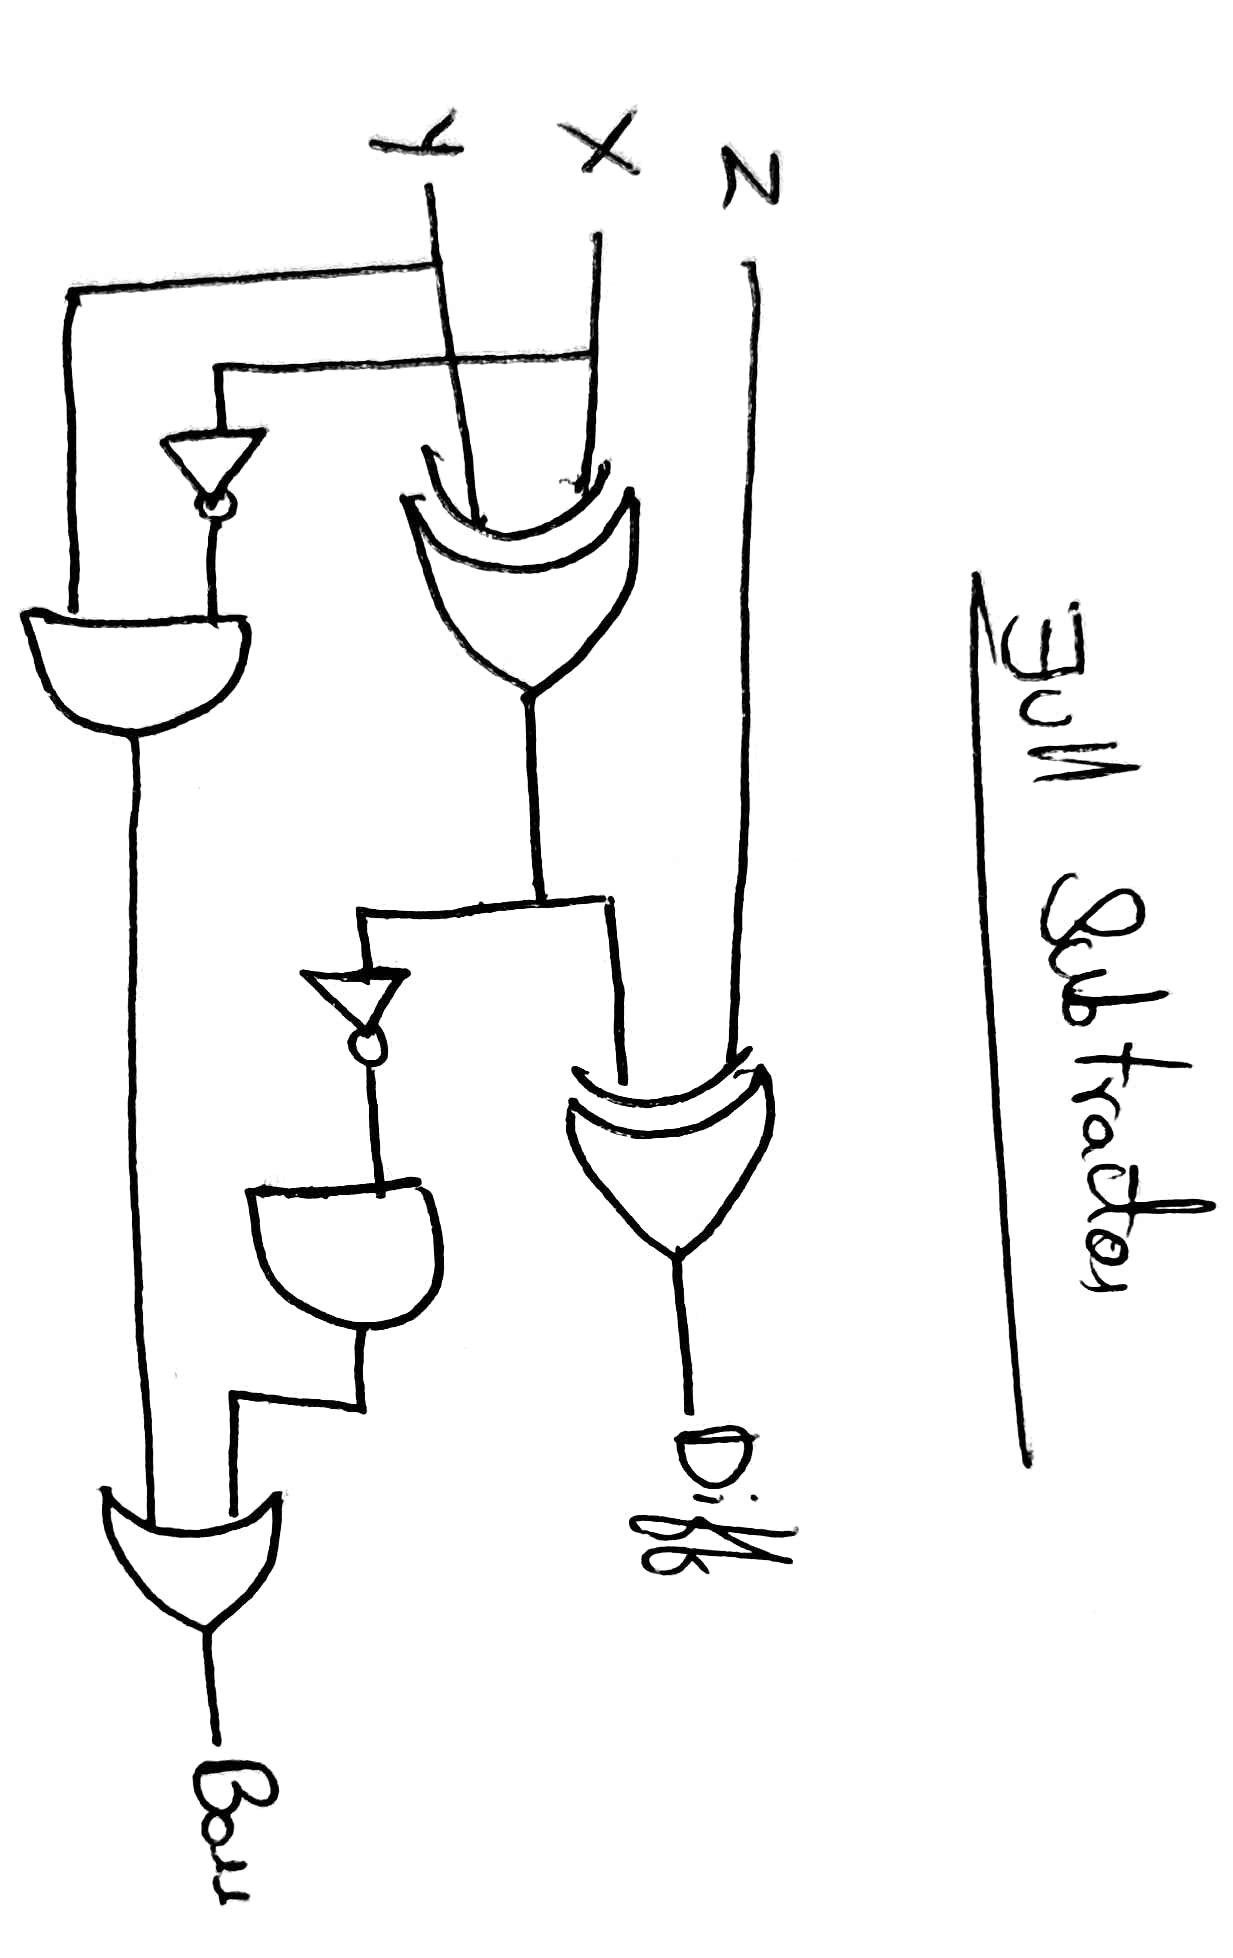 Full Subtractor
Z
X
Y
Diff
Borr